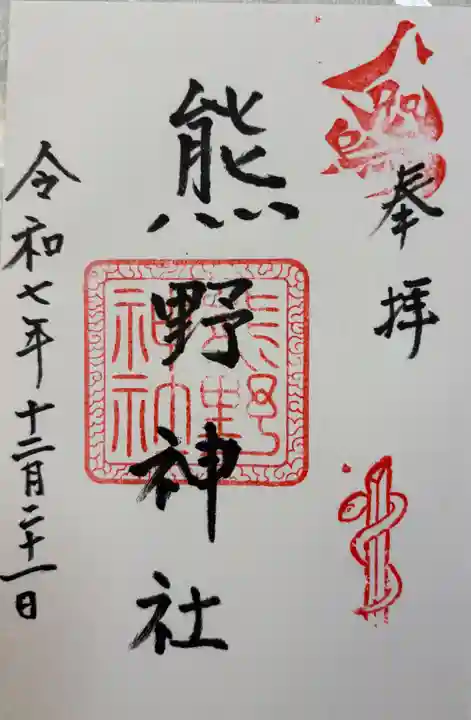 八咫烏
奉拝
熊野神社
熊野
神社
令和七年十二月二十一日